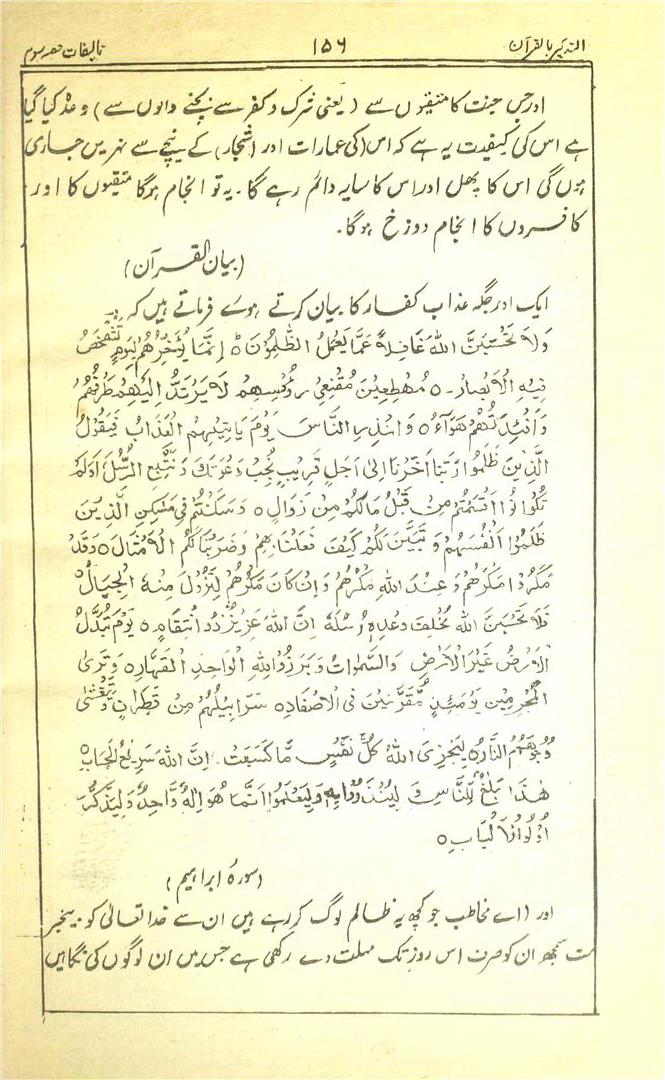 التذکیر بالقرآن ۱۵۶ تالیفات حصہ سوم
اور جس جنت کا متقیوں سے (یعنی شرک و کفر سے بچنے والوں سے) وعدہ کیا گیا
ہے اس کی کیفیت یہ ہے کہ اس (کی عمارات اور اشجار) کے نیچے سے نہریں جاری
ہوں گی اس کا پھل اور اس کا سایہ دائم رہے گا۔ یہ تو انجام ہوگا متقیوں کا اور
کافروں کا انجام دوزخ ہوگا۔
(بیان القرآن)
ایک اور جگہ عذاب کفار کا بیان کرتے ہوئے فرماتے ہیں کہ :۔
وَلَا تَحْسَبَنَّ اللهَ غَافِلًا عَمَّا يَعْمَلُ الظّٰلِمُوْنَ ۵ اِنَّمَا يُؤَخِّرُهُمْ لِيَوْمٍ تَشْخَصُ
فِيْهِ الْاَبْصَارُ ۵ مُهْطِعِيْنَ مُقْنِعِيْ رُءُوْسِهِمْ لَا يَرْتَدُّ اِلَيْهِمْ طَرْفُهُمْ
وَاَفْئِدَتُهُمْ هَوَآءٌ ۵ وَاَنْذِرِ النَّاسَ يَوْمَ يَاْتِيْهِمُ الْعَذَابُ فَيَقُوْلُ
الَّذِيْنَ ظَلَمُوْا رَبَّنَا اَخِّرْنَا اِلٰى اَجَلٍ قَرِيْبٍ نُّجِبْ دَعْوَتَكَ وَنَتَّبِعِ الرُّسُلَ اَوَلَمْ
تَكُوْنُوْا اَقْسَمْتُمْ مِنْ قَبْلُ مَالَكُمْ مِنْ زَوَالٍ ۵ وَسَكَنْتُمْ فِيْ مَسٰكِنِ الَّذِيْنَ
ظَلَمُوْا اَنْفُسَهُمْ وَتَبَيَّنَ لَكُمْ كَيْفَ فَعَلْنَا بِهِمْ وَضَرَبْنَا لَكُمُ الْاَمْثَالَ ۵ وَقَدْ
مَكَرُوْا مَكْرَهُمْ وَعِنْدَ اللهِ مَكْرُهُمْ وَاِنْ كَانَ مَكْرُهُمْ لِتَزُوْلَ مِنْهُ الْجِبَالُ ۵
فَلَا تَحْسَبَنَّ اللهَ مُخْلِفَ وَعْدِهٖ رُسُلَهٗ اِنَّ اللهَ عَزِيْزٌ ذُوانْتِقَامٍ ۵ يَوْمَ تُبَدَّلُ
الْاَرْضُ غَيْرَ الْاَرْضِ وَالسَّمٰوَاتُ وَبَرَزُوْا لِلّٰهِ الْوَاحِدِ الْقَهَّارِ ۵ وَتَرَى
الْمُجْرِمِيْنَ يَوْمَئِذٍ مُّقَرَّنِيْنَ فِى الْاَصْفَادِ ۵ سَرَابِيْلُهُمْ مِنْ قَطِرَانٍ وَّتَغْشٰى
وُجُوْهَهُمُ النَّارُ ۵ لِيَجْزِيَ اللهُ كُلَّ نَفْسٍ مَّا كَسَبَتْ اِنَّ اللهَ سَرِيْعُ الْحِسَابِ ۵
هٰذَا بَلٰغٌ لِّلنَّاسِ وَ لِيُنْذَرُوْا بِهٖ وَلِيَعْلَمُوْا اَنَّمَا هُوَ اِلٰهٌ وَّاحِدٌ وَّلِيَذَّكَّرَ
اُولُوا الْاَلْبَابِ ۵
(سورۂ ابراہیم)
اور (اے مخاطب جو کچھ یہ ظالم لوگ کر رہے ہیں ان سے خدا تعالیٰ کو بیخبر
مت سمجھ ان کو صرف اس روز تک مہلت دے رکھی ہے جس میں ان لوگوں کی نگاہیں